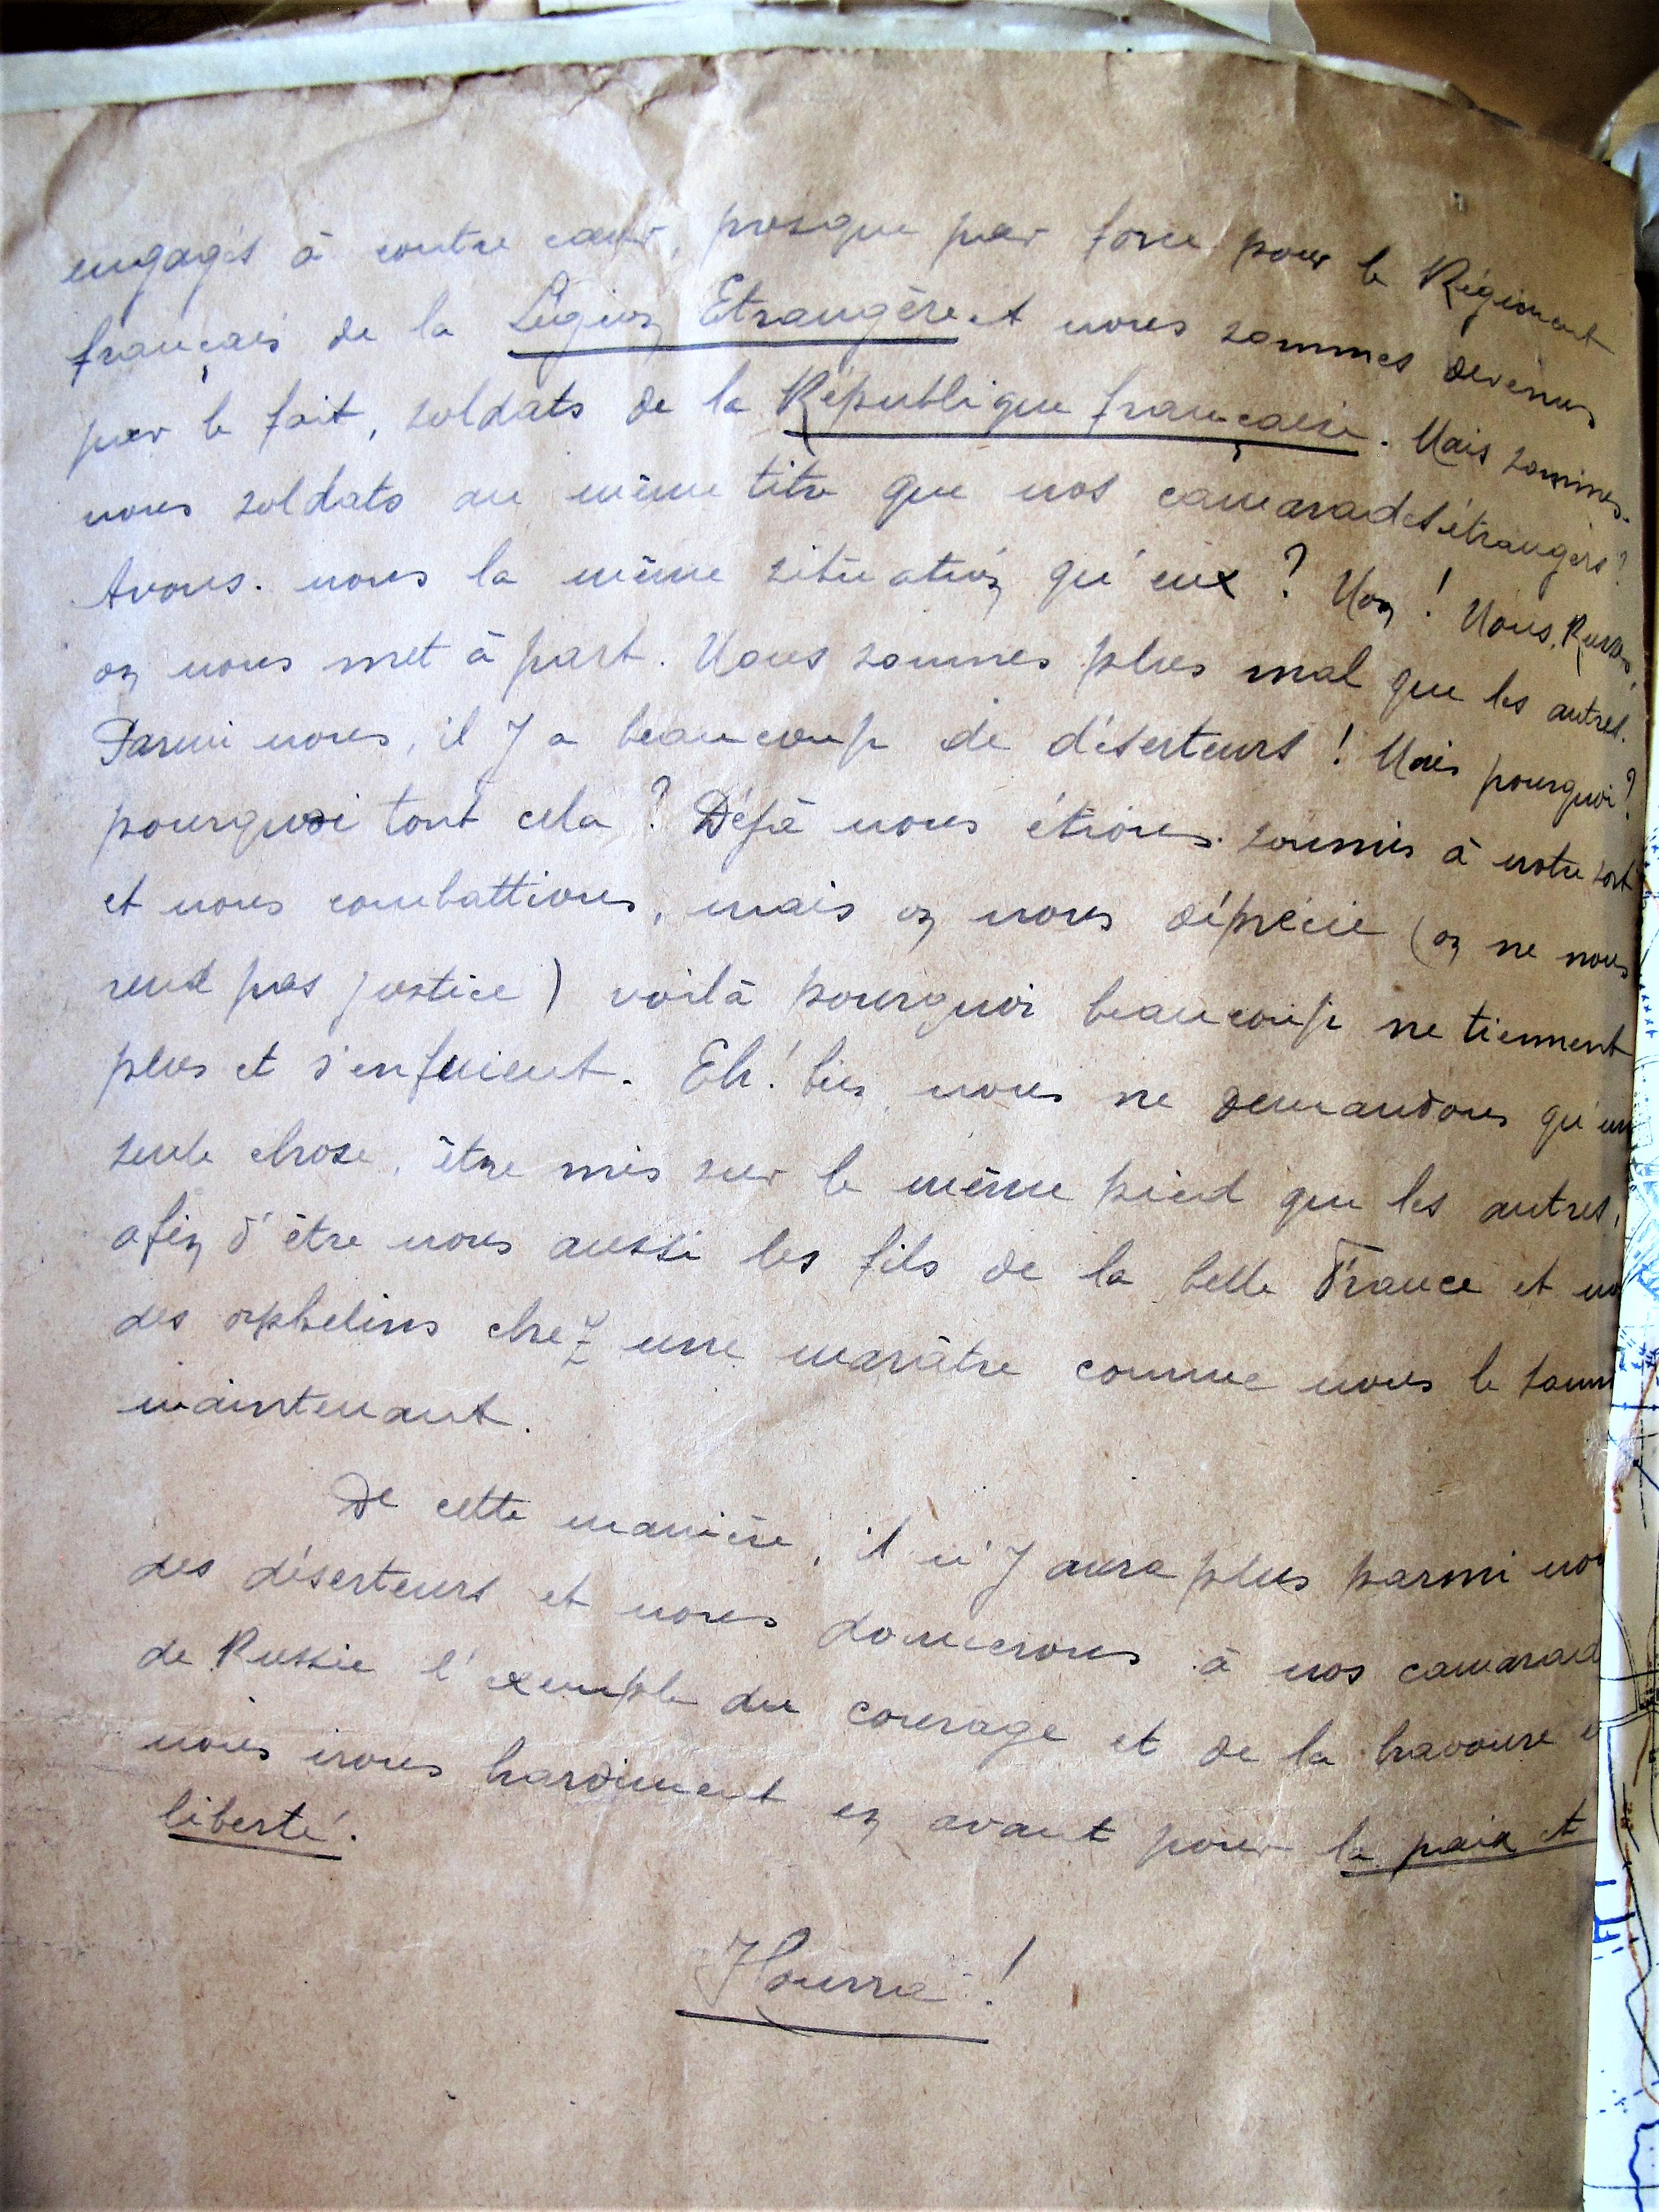 engagés à contre cœur, presque par force pour le Régiment
français de la Légion Etrangère et nous sommes devenus
par le fait, soldats de la République française. Mais sommes-
nous soldats au même titre que nos camarades étrangers?
Avons-nous la même situation qu'eux? Non! Nous, Russes,
on nous met à part. Nous sommes plus mal que les autres.
Parmi nous, il y a beaucoup de déserteurs! Mais pourquoi?
pourquoi tout cela? Déjà nous étions soumis à notre sort
et nous combattions, mais on nous déprécie (on ne nous
rend pas justice) voilà pourquoi beaucoup ne tiennent
plus et s'enfuient. Eh! bien, nous ne demandons qu'un
seule chose, être mis sur le même pied que les autres,
afin d'être nous aussi les fils de la belle France et no
des orphelins chez une marâtre comme nous le somm
maintenant.
De cette manière, il n'y aura plus parmi nou
des déserteurs et nous donnerons à nos camarad
de Russie l'exemple du courage et de la bravoure e
nous irons hardiment en avant pour la paix et
liberté.
Hourra!